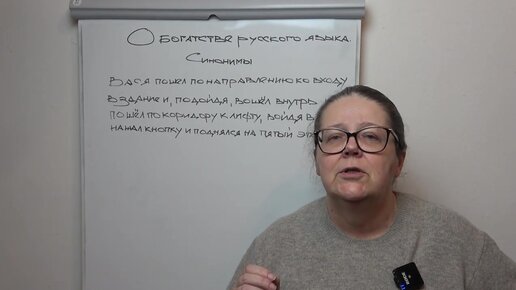 О богатстве русского языка.
Синонимы
Вася пошел по направлению ко входу
в здание и, подойдя, вошёл внутрь
пошёл по коридору к лифту, войдя в
нажал кнопку и поднялся на пятый